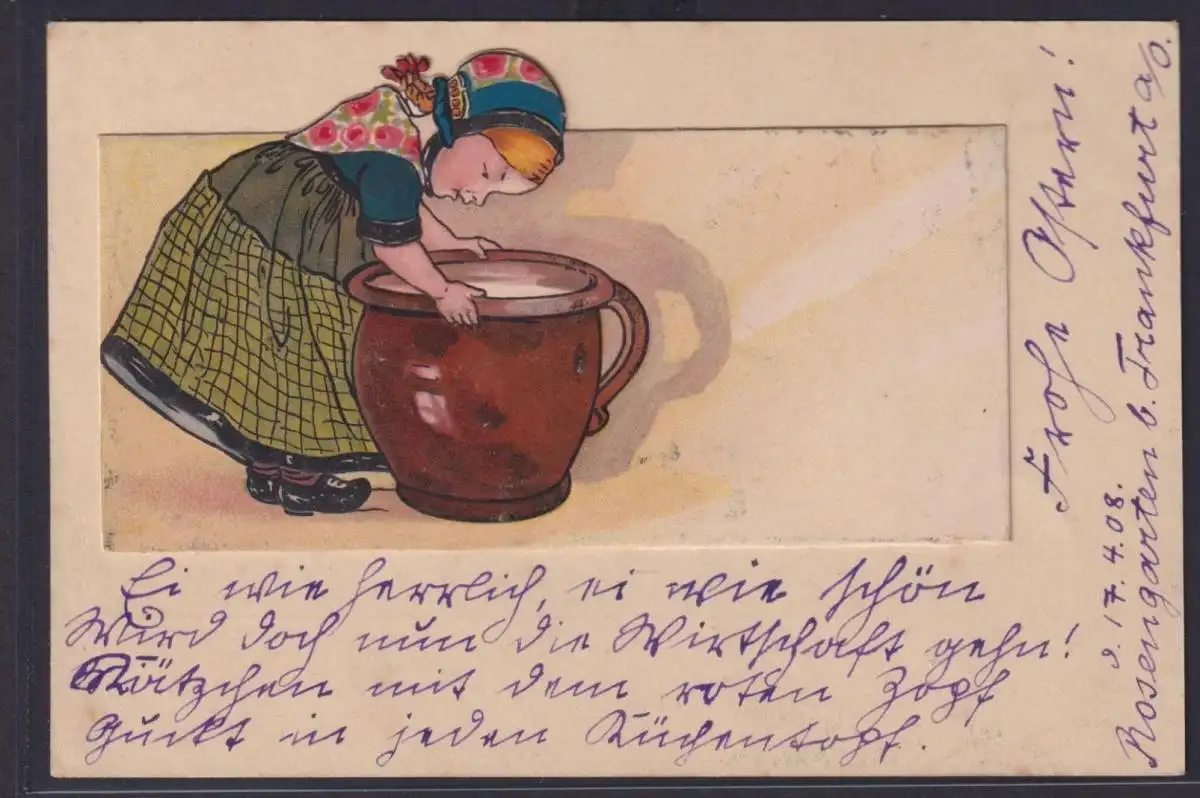 Ei wie herrlich, ei wie schön
Wird doch nun die Wirtschaft gehn!
Kätzchen mit dem roten Zopf
Guckt in jeden Küchentopf.
Frohe Ostern!
d. 17. 4. 08.
Rosengarten b. Frankfurt a/O.